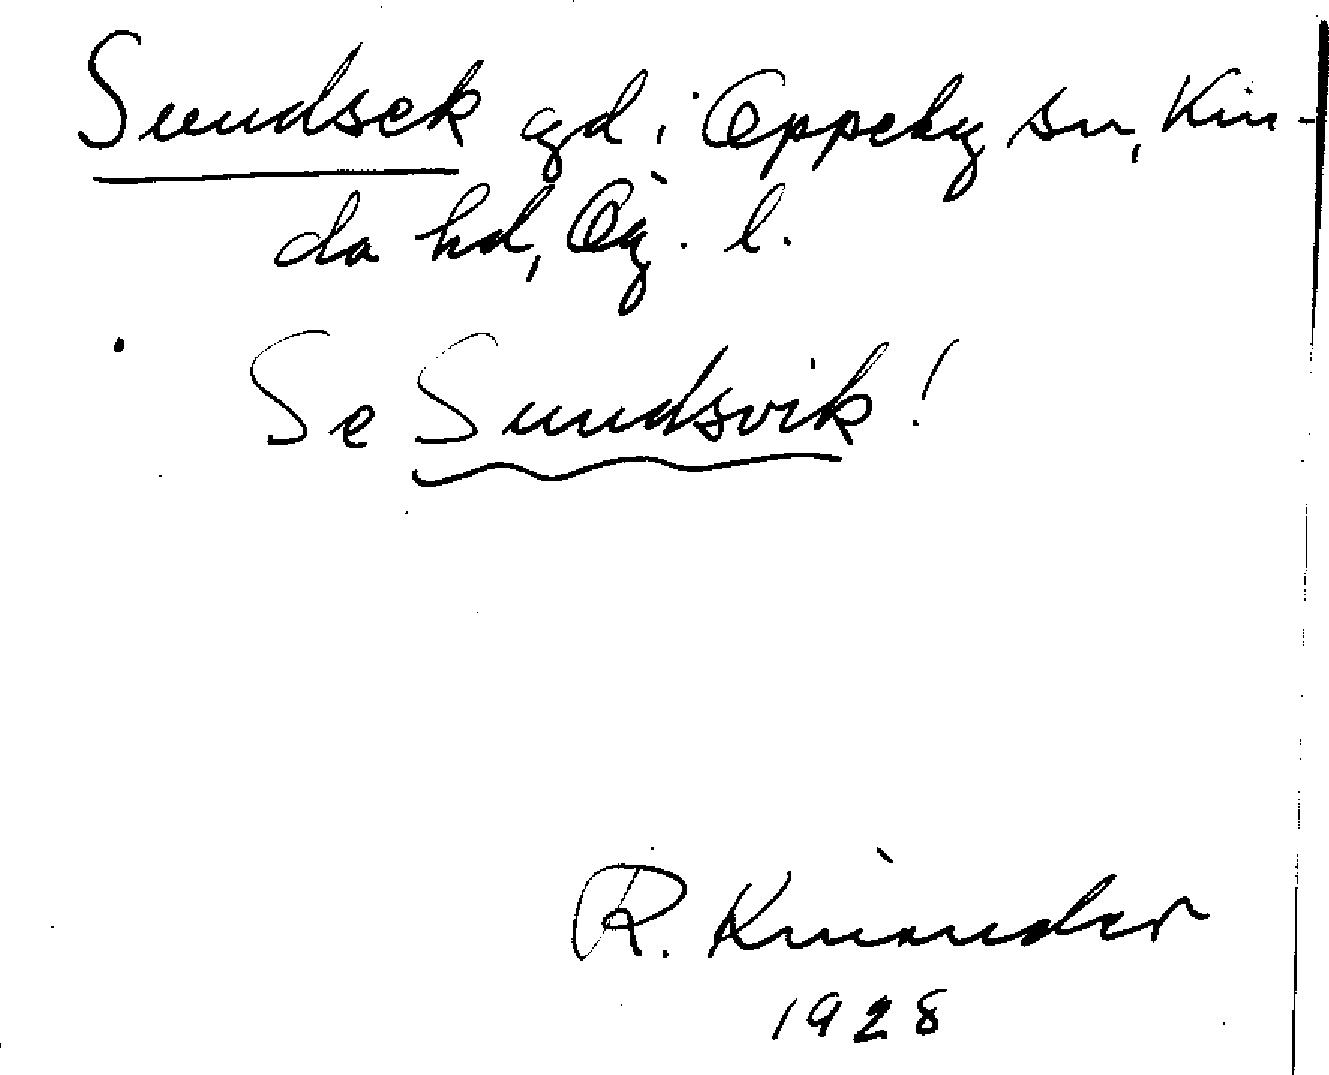 Sundsek gd i Oppeby sn, Kin-
da hd, Ög. l.
Se Sundsvik!
R. Kinander
1928